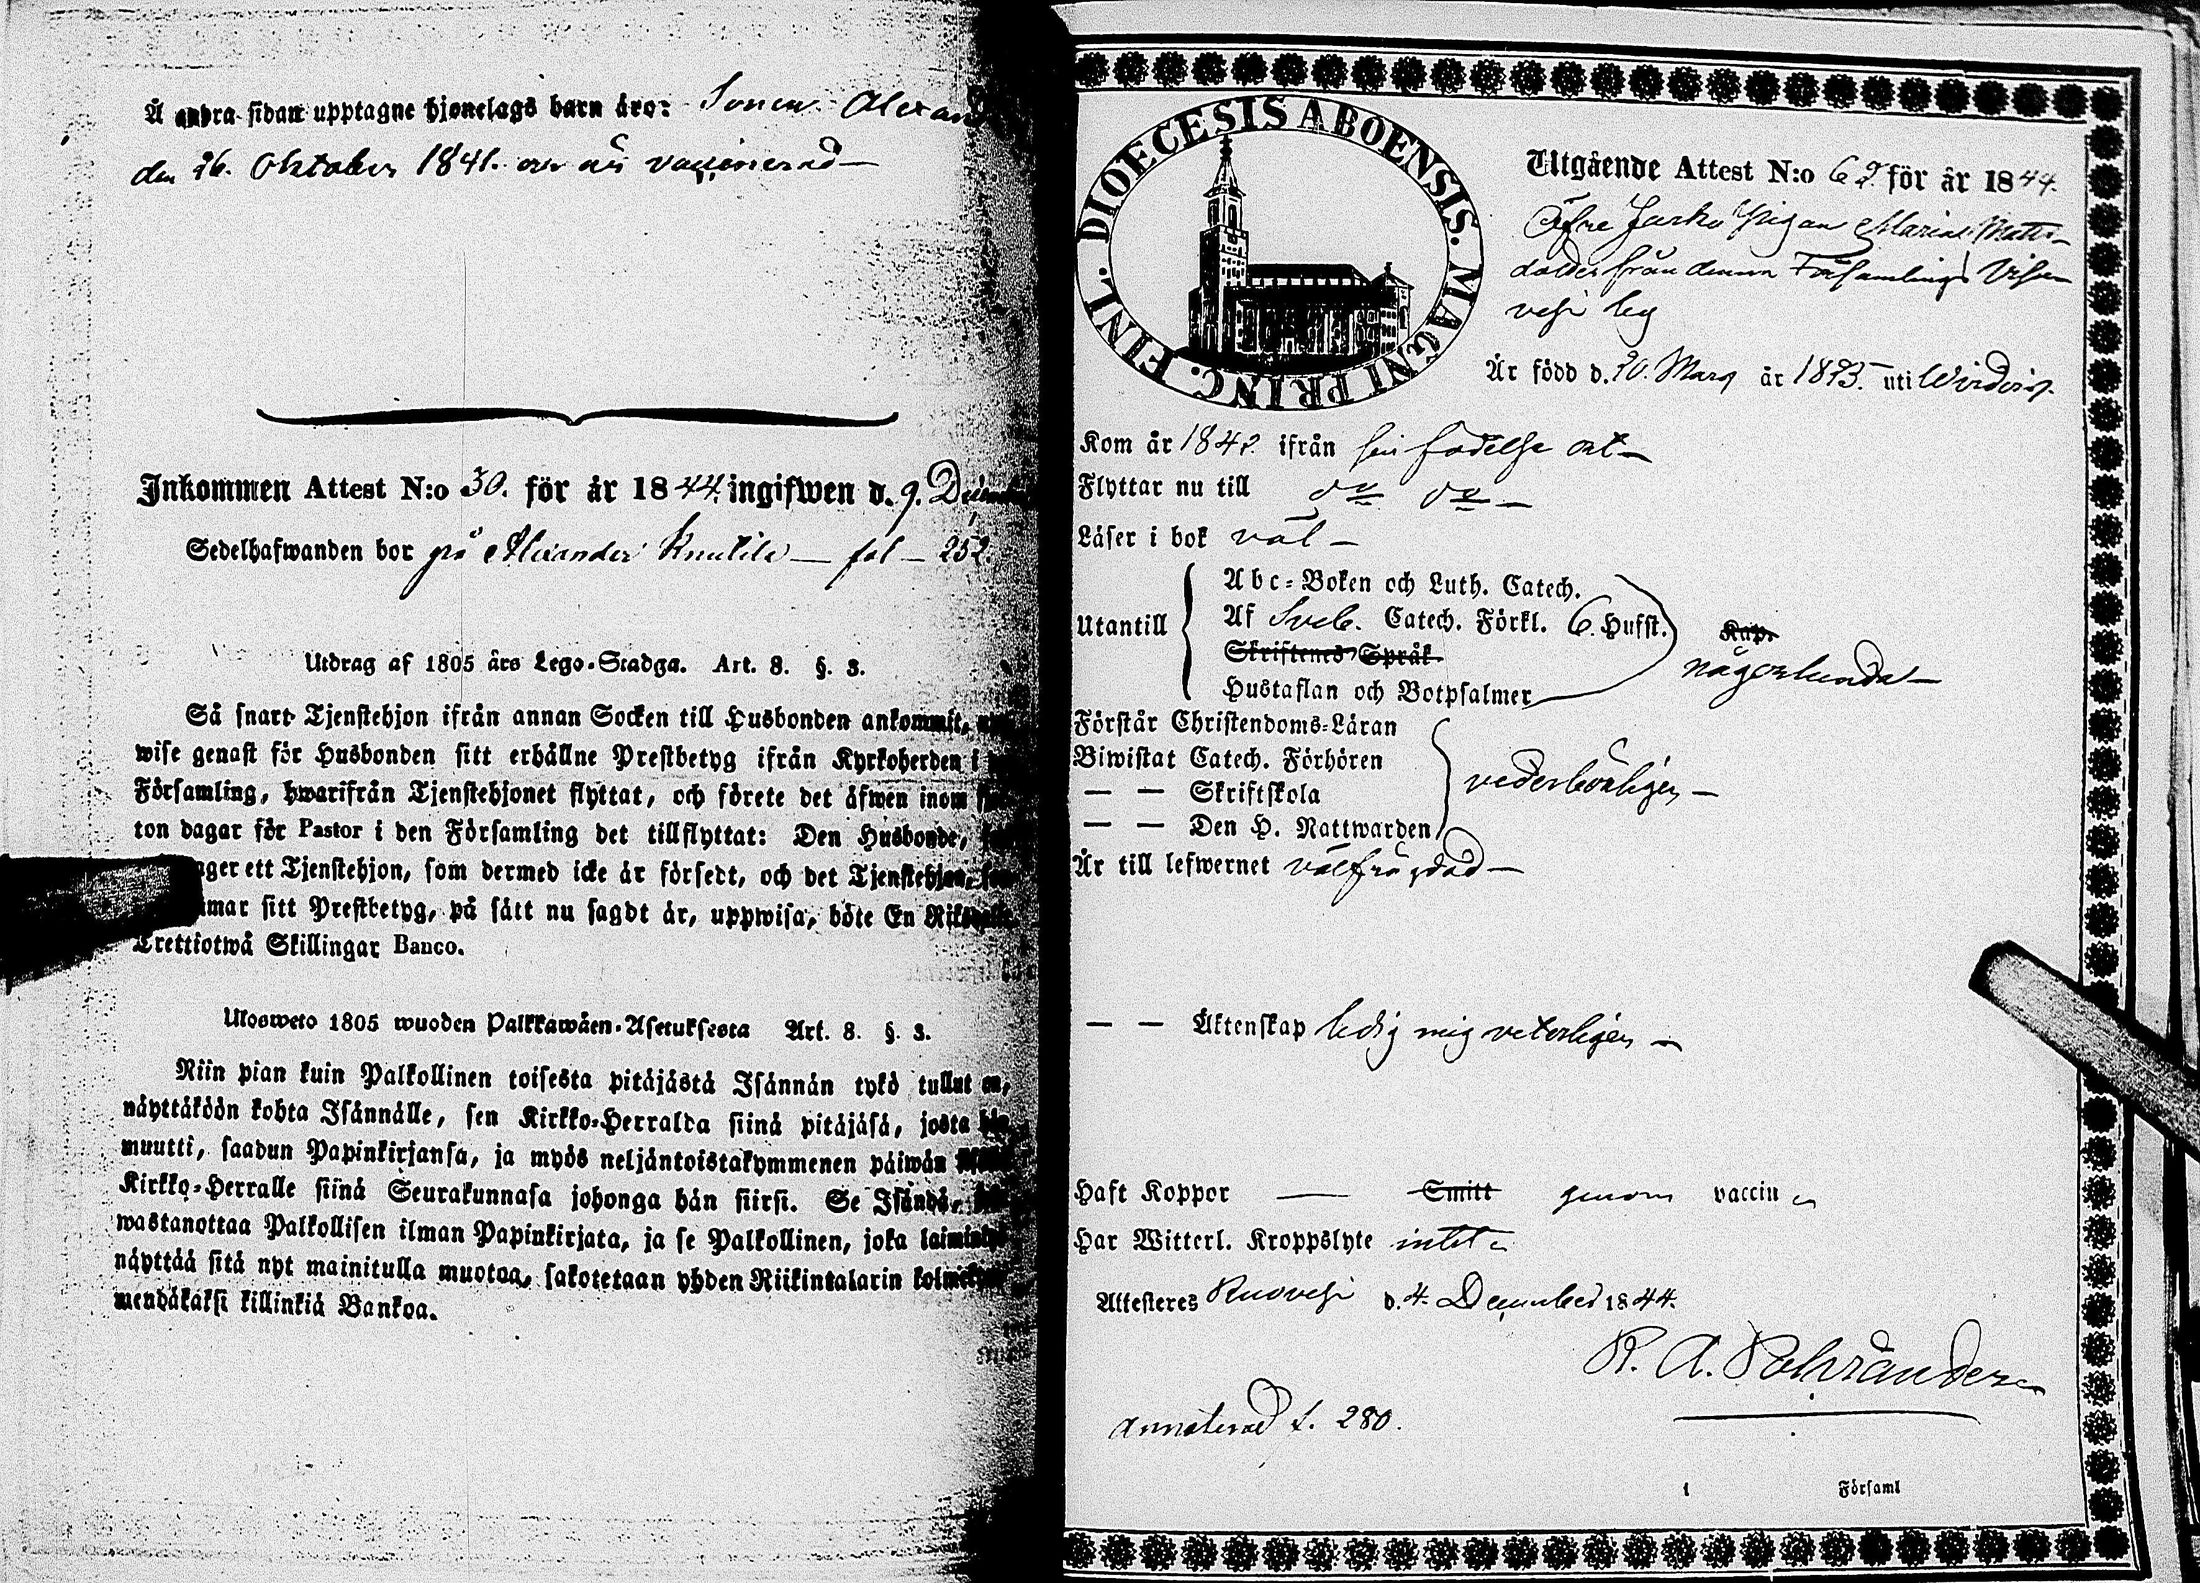 Å andra sidan upptagne hjonelags barn äro: Sonen Alexan
den 26. Oktober 1841. och är vaccinerad —
Inkommen Attest N:o 30. för år 1844. ingifwen d. 9. Decemb
Sedelhafwanden bor på Alexander Knutila — fol — 252.
Utdrag af 1805 års Lego-Stadga. Art. 8. §. 3.
Så snart Tjenstehjon ifrån annan Socken till Husbonden ankommit,
wise genast för Husbonden sitt erhållne Prestbetyg ifrån Kyrkoherden i
Församling, hwarifrån Tjenstehjonet flyttat, och förete det äfwen inom
ton dagar för Pastor i den Församling det tillflyttat: Den Husbonde,
ager ett Tjenstehjon, som dermed icke är försedt, och det Tjenstehjon,
mar sitt Prestbetyg, på sätt nu sagdt är, uppwisa, böte En Riksdaler
Trettiotwå Skillingar Banco.
Ulosweto 1805 wuoden Palkkawäen-Asetuksesta Art. 8. §. 3.
Niin pian kuin Palkollinen toisesta pitäjästä Isännän tykö tullut on,
näyttäköön kohta Isännälle, sen Kirkko-Herralda siinä pitäjäsä, josta hän
muutti, saadun Papinkirjansa, ja myös neljäntoistakymmenen päiwän
Kirkko-Herralle siinä Seurakunnasa johonga hän siirsi. Se Isändä,
wastanottaa Palkollisen ilman Papinkirjata, ja se Palkollinen, joka laimin
näyttää sitä nyt mainitulla muotoa, sakotetaan yhden Riikintalarin kolme
mendäkaksi killinkiä Bankoa.
DIOECESIS ABOENSIS. MAGNI PRINC. FINL.
Utgående Attest N:o 62. för år 1844.
Öfre Jarko Pigan Maria Matts-
dotter från denna Församlings Visu
vesi by
Är född d. 20. Mars år 1823. uti Wirdois.
Kom år 1842. ifrån sin födelse ort —
Flyttar nu till do do —
Läser i bok väl —
Utantill
Abc-Boken och Luth. Catech.
Af Sveb. Catech. Förkl. 6. Hufst. Kap.
Skriftenes Språk
någorlunda —
Hustaflan och Botpsalmer
Förstår Christendoms-Läran
Biwistat Catech. Förhören
— — Skriftskola
vederbörligen —
— — Den H. Nattwarden
Är till lefwernet välfrägdad —
— — Äktenskap ledig mig veterligen —
Haft Koppor — Smitt genom vaccin
Har Witterl. Kroppslyte intet
Attesteres Ruovesi d. 4. December 1844.
annoterad f. 280.
Församl